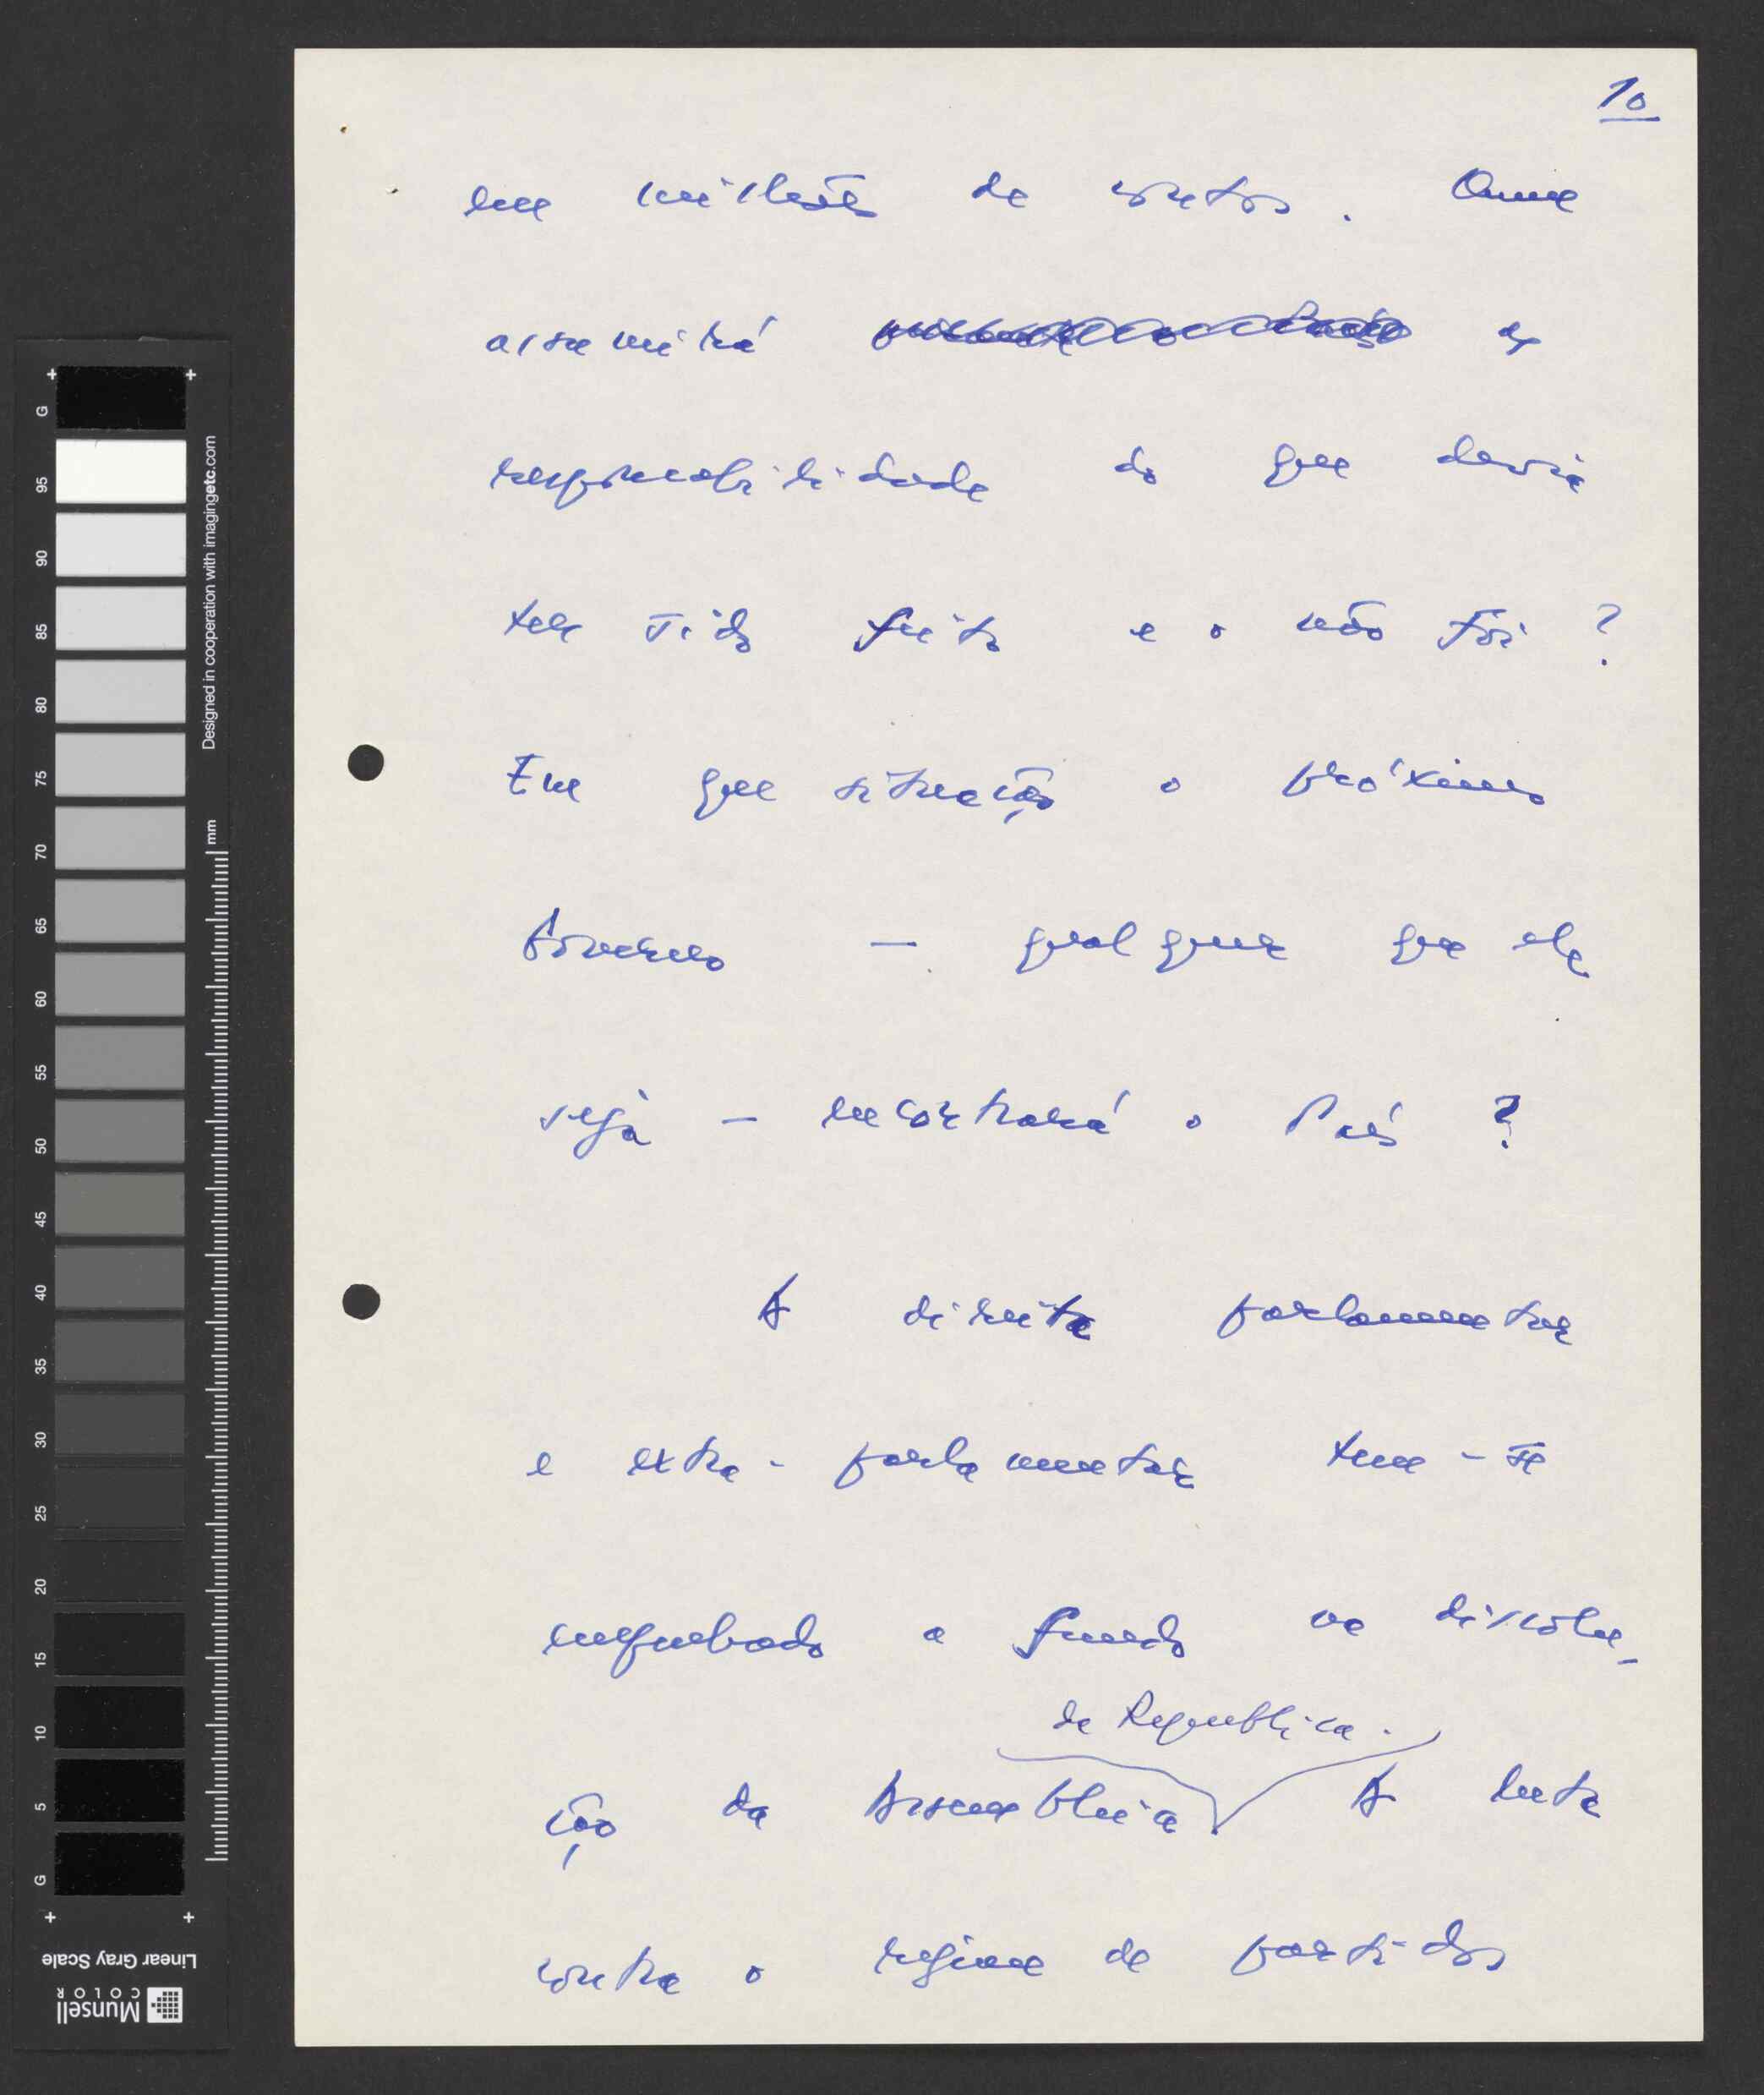 10
em milhões de contos. Quem
assumirá a
responsabilidade do que devia
ter sido feito e o não foi ?
Em que situação o próximo
Governo — qualquer que ele
seja — encontrará o País ?
A direita parlamentar
e extra-parlamentar tem-se
empenhado a fundo na dissolu-
da República.
ção da Assembleia A luta
contra o regime de partidos
G
95
90
85
80
75
70
65
60
55
50
45
40
35
30
25
20
15
10
5
G
Designed in cooperation with imagingetc.com
mm
Linear Gray Scale
Munsell
COLOR